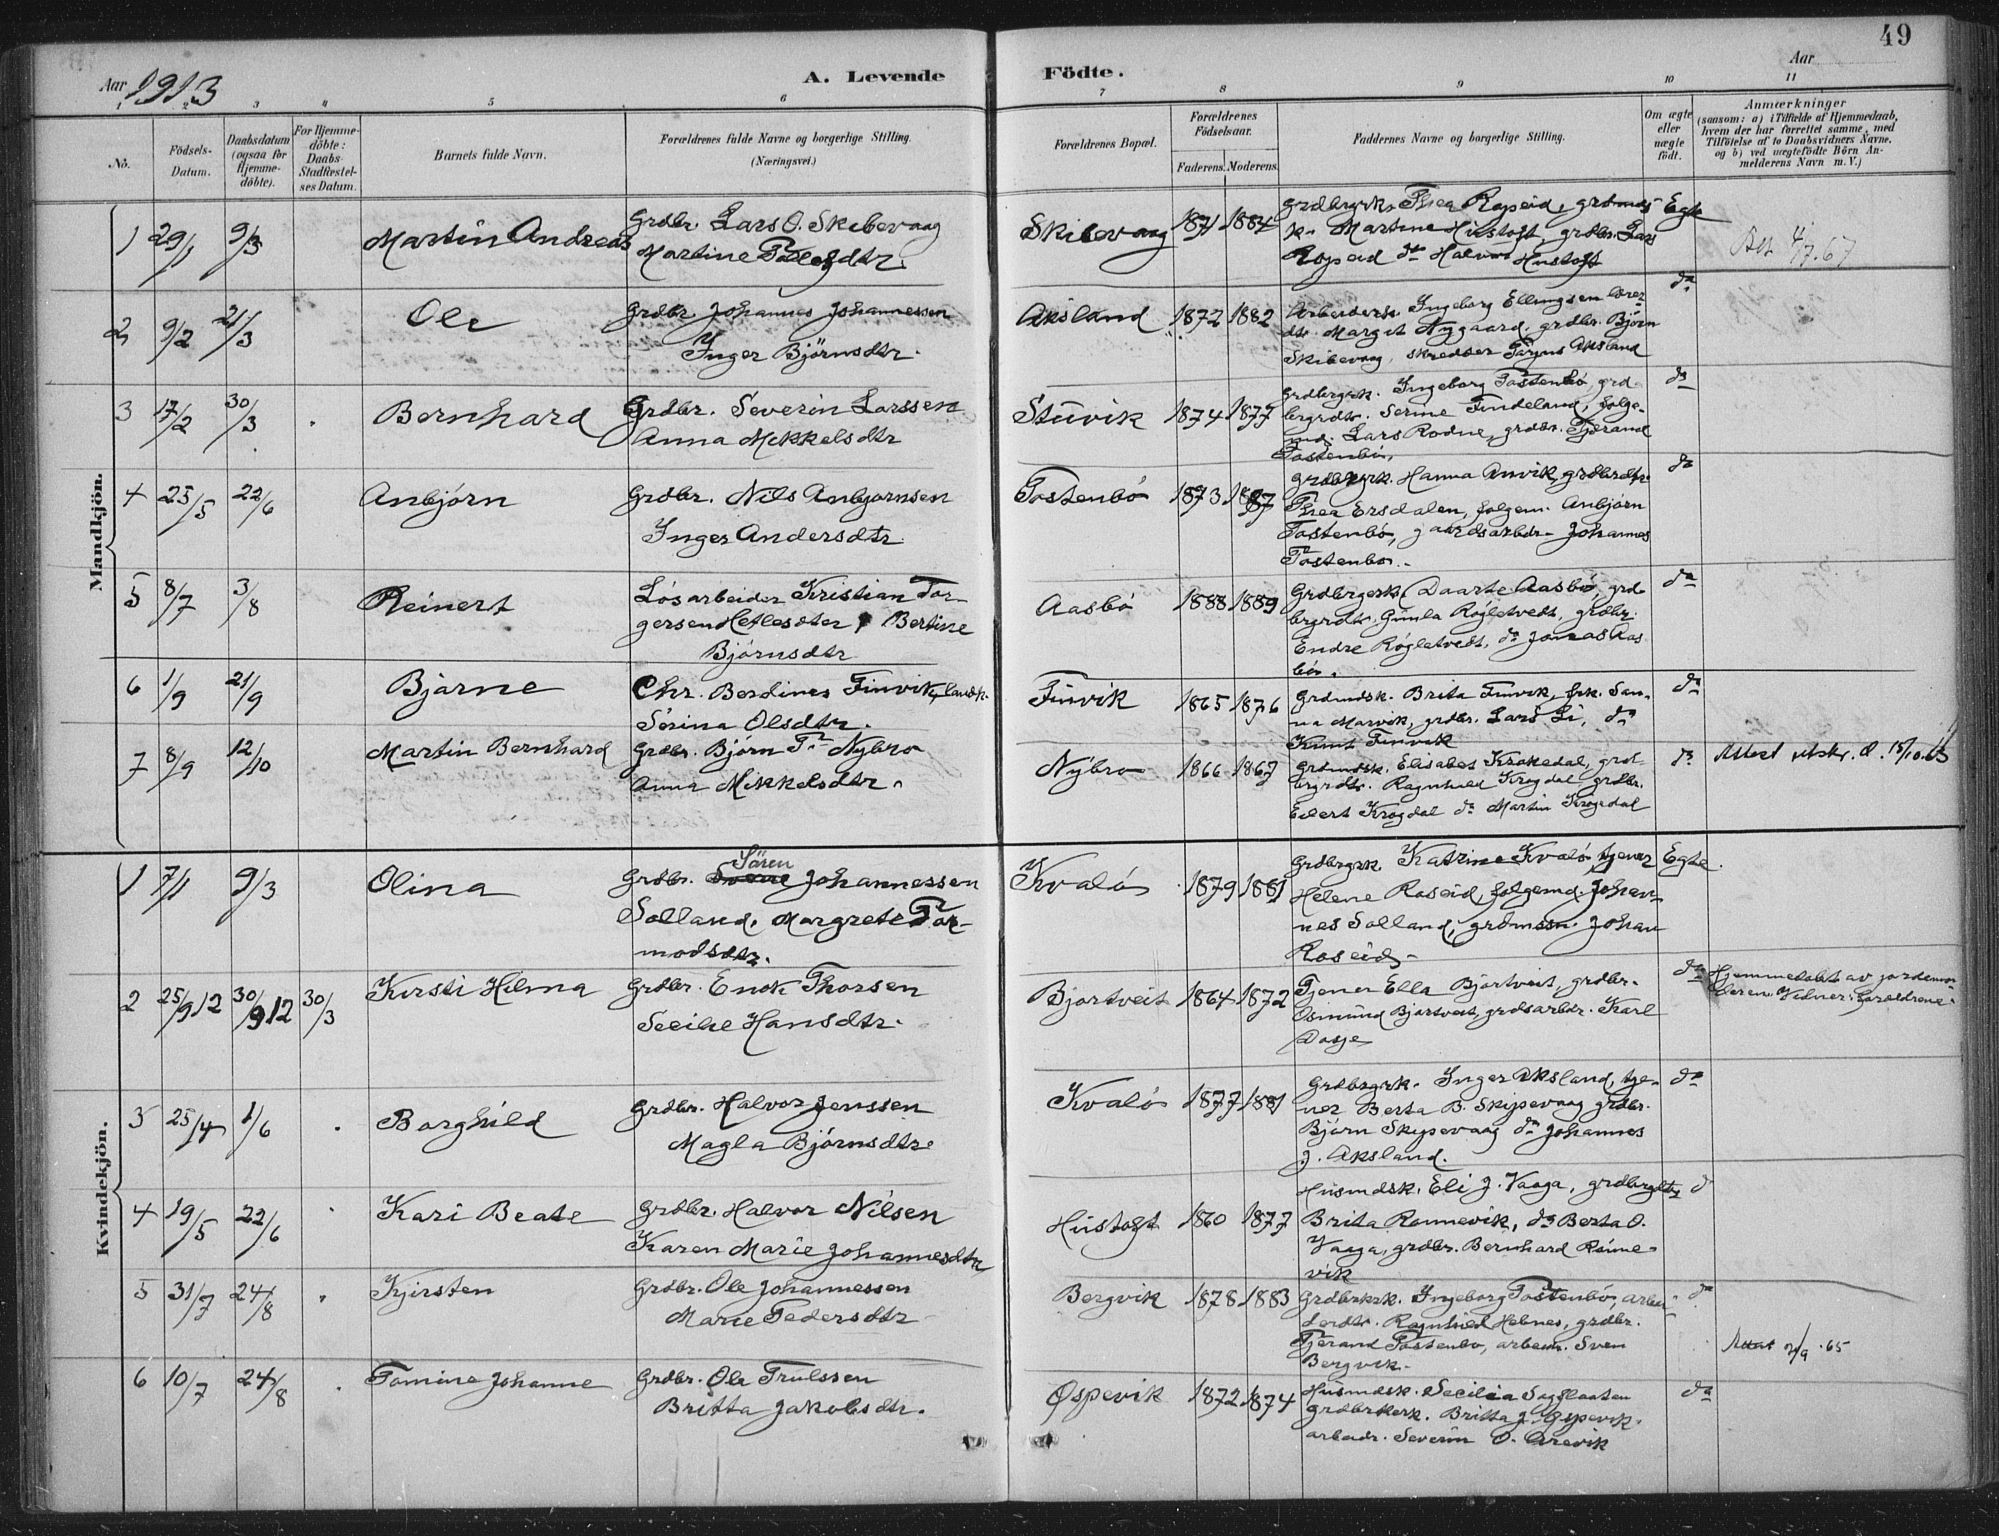 49
Aar 1913
A. Levende
Födte.
Aar
1 2 3 4 5 6 7 8 9 10 11
No.
Födsels-Datum.
Daabsdatum (ogsaa for Hjemme-döbte).
For Hjemme-döbte: Daabs-Stadfæstel-ses Datum.
Barnets fulde Navn.
Forældrenes fulde Navne og borgerlige Stilling. (Næringsvei.)
Forældrenes Bopæl.
Forældrenes Födselsaar.
Faderens. Moderens.
Faddernes Navne og borgerlige Stilling.
Om ægte eller uægte födt.
Anmærkninger
(saasom: a) i Tilfælde af Hjemmedaab, hvem der har forrettet samme, med Tilföielse af to Daabsvidners Navne, og b) ved uægtefödte Börn An-melderens Navn m. V.)
Mandkjön.
1 29/1 9/3 Martin Andreas
Grdbr. Lars O. Skibevaag
Martine
Skibevaag 1871 1884
grdbrgrk. Thea Ropeid, grdmds-
k. Martine Hustoft, grdbr. Lars
Ropeid do Halvor Hustoft
Egte
2 9/2 21/3 Ole
Grdbr. Johannes Johannessen
Inger Björnsdtr.
Aksland 1872 1882
Arbeidersk. Ingeborg Ellingsen lærer-
dtr. Margit Nygaard, grdbr. Björn
Skibevaag, skredder Aksland
do
3 17/2 30/3 Bernhard
Grdbr. Severin Larssen
Anna Mikkelsdtr
Stuvik 1874 1877
Grdbrgrk. Ingeborg Tostenbö, grd-
brgrdtr. Serine Tindeland, folge-
md. Lars Rodne, grdbr. Tjerand
Tostenbö.
do
4 25/5 22/6 Anbjörn
Grdbr. Nils Anbjörnsen
Inger Andersdtr.
Tostenbö 1873 1887
grdbrgrk. Hanna Anvik, grdbrdtr.
Thea Ersdalen, folgem. Anbjörn
Tostenbö, gaardsarbdr. Johannes
Tostenbö.
do
5 8/7 3/8 Reinert
Lösarbeider Kristian Tor-
gersen Bertine
Björnsdtr
Aasbö 1888 1889
Grdbrgerk. Daarte Aasbö, grd-
brgrdtr. Gunla Rögletvedt, grdbr.
Endre Rögletvedt, do Jonas Aas-
bö.
do
6 1/9 21/9 Bjarne
Chr. Berdines Finvik, landh.
Serina Olsdtr.
Finvik 1865 1876
Grdmdsk. Brita Finvik, frk. San-
na Marvik, grdbr. Lars Li, do
Knut Finvik
do
7 8/9 12/10 Martin Bernhard
Grdbr. Björn T. Nybro
Anna Mikkelsdtr.
Nybro 1866 1867
Grdmdsk. Elisabet Krokedal, grd-
brgrdtr. Ragnhild Krogdal grdbr.
Eilert Krogdal do Martin Krogedal
do
Attest utskr. d. 15/10.63
Kvindekjön.
1 7/1 9/3 Olina
Sören
Grdbr. Johannessen
Solland, Margrete Tor-
modsdtr.
Kvalö 1879 1881
Grdbrgrk. Katrine Kvalö, tjener
Helene Roseid, folgemd. Johan-
nes Solland, grdmssn. Johan
Roseid.
Egte.
2 25/9 12 30/9 12 30/3 Kirsti Hilma
Grdbr. Enok Thorsen
Secilie Hansdtr.
Bjortveit 1864 1872
Tjener Ella Bjortveit, grdbr.
Osmund Bjortveit, grdsarbdr. Karl
do
Hjemmedöbt av jordemo-
deren. Vidner: foreldrene.
3 25/4 1/6 Borghild
Grdbr. Halvor Jenssen
Magla Björnsdtr.
Kvalö 1877 1881
Grdbrgrk. Inger Aksland, tje-
ner Berta B. Skipevaag grdbr.
Björn Skipevaag do Johannes
J. Aksland.
do
4 19/5 22/6 Kari Beate
Grdbr. Halvor Nilsen
Karen Marie Johannesdtr
Hustoft 1860 1877
Husmdsk. Eli J. Vaaga, grdbrgdtr
Brita Ronnevik, do Berta O.
Vaaga, grdbr. Bernhard Rönne-
vik
do
5 31/7 24/8 Kjirsten
Grdbr. Ole Johannessen
Marie Pedersdtr
Bergvik 1878 1883
Grdbrkrk. Ingeborg Tostenbö, arbei-
derdtr. Ragnhild Hebnes, grdbr.
Tjerand Tostenbö, arbeidr. Sven
Bergvik.
do
6 10/7 24/8 Tomine Johanne
Grdbr. Ole Trulssen
Britta Jakobsdtr.
Ospevik 1872 1874
Husmdsk. Secilia
grdbrkerk. Britta J. Ospevik.
arbeidr. Severin O.
do